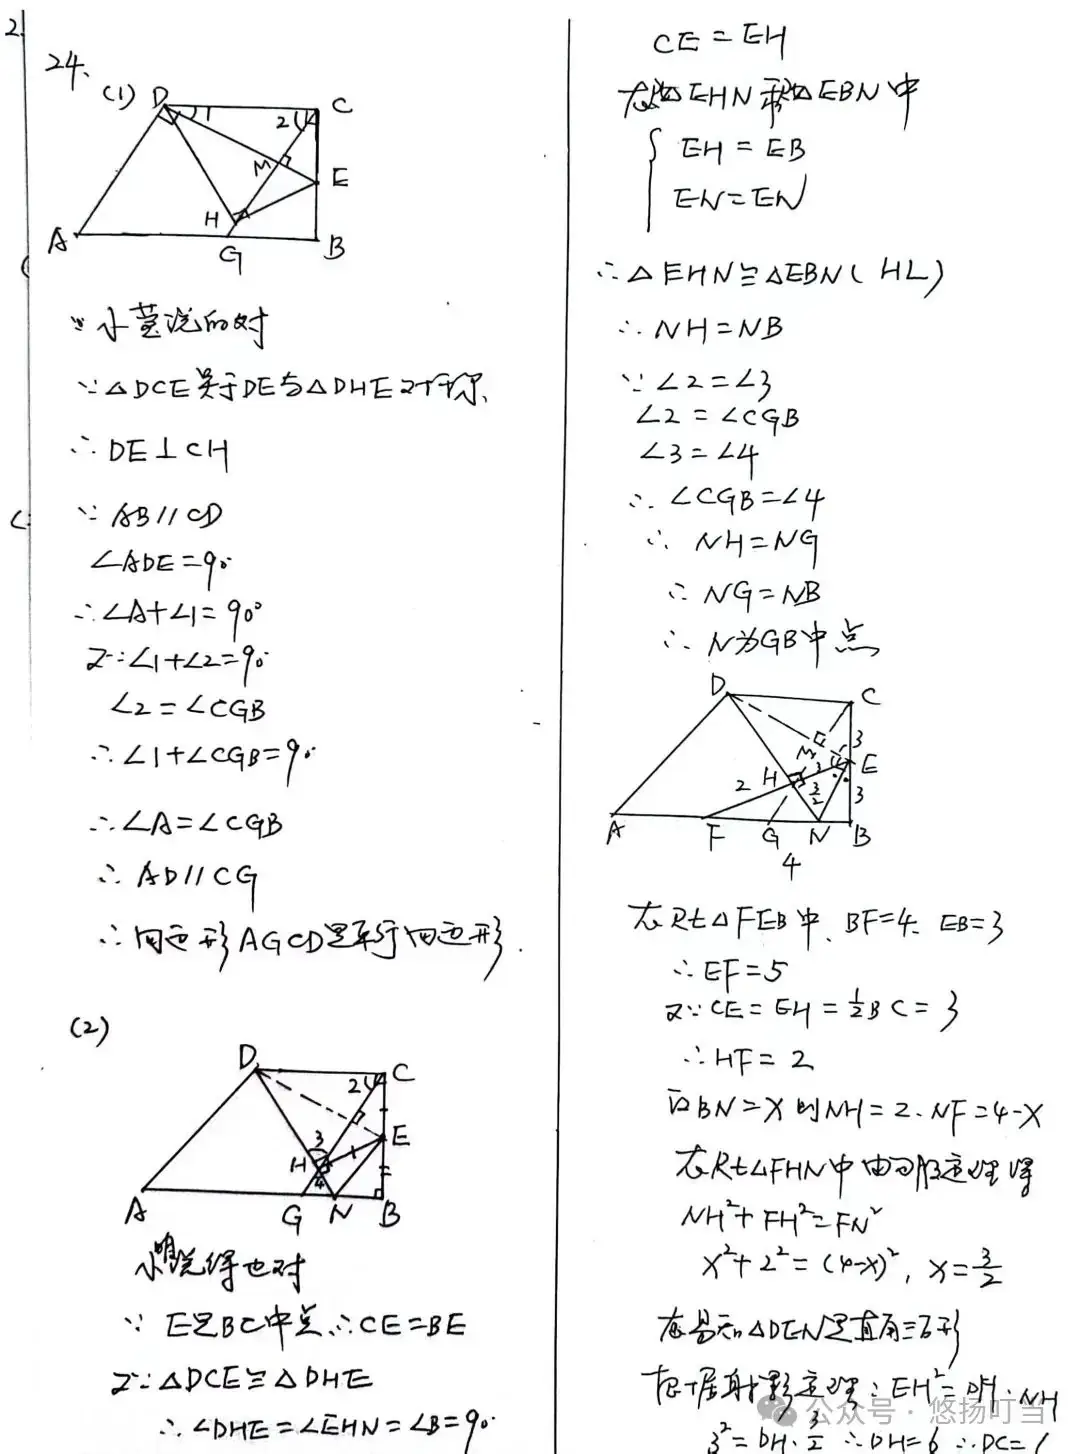 2
24.
(1)
D
C
1
2
M
E
H
A
G
B
∵小莹说的对
∵△DCE关于DE与△DHE对称
∴DE⊥CH
∵AB∥CD
∠ADE=90°
∴∠A+∠1=90°
又∵∠1+∠2=90°
∠2=∠CGB
∴∠1+∠CGB=90°
∴∠A=∠CGB
∴AD∥CG
∴四边形AGCD是平行四边形.
(2)
D
C
2
E
3
H
1
4
A
G
N
B
小明说得也对
∵E是BC中点∴CE=BE
又∵△DCE≌△DHE
∴∠DHE=∠EHN=∠B=90°
CE=EH
在Rt△EHN和Rt△EBN中
EH=EB
EN=EN
∴△EHN≌△EBN(HL)
∴NH=NB
∵∠2=∠3
∠2=∠CGB
∠3=∠4
∴∠CGB=∠4
∴NH=NG
∴NG=NB
∴N为GB中点
D
C
M
3
H
3
E
2
3/2
3
A
F
G
N
B
4
在Rt△FEB中、BF=4、EB=3
∴EF=5
又∵CE=EH=1/2BC=3
∴HF=2
设BN=x则NH=2.NF=4-x
在Rt△FHN中由勾股定理得
NH²+FH²=FN²
x²+2²=(4-x)², x=3/2
易知△DEN是直角三角形
根据射影定理:EH²=DH·NH
3²=DH·3/2 ∴DH=6 ∴DC=6
公众号·悠扬叮当